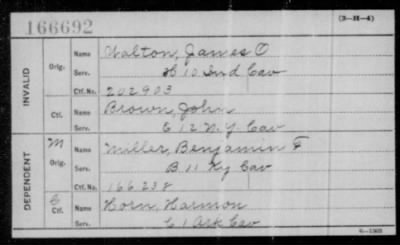 166692 (3-H-4)
INVALID Orig. Name Walton, James O
Serv. H 10 Ind Cav
Ctf. No. 202903
Ctf. Name Brown, John
Serv. C 12 N.Y. Cav
DEPENDENT M Orig. Name Miller, Benjamin F
Serv. B 11 Ky Cav
Ctf. No. 166238
C Ctf. Name Horn, Harmon
Serv. C 1 Ark Cav